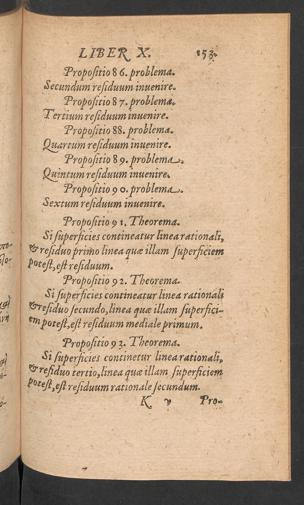 LIBER X. 153.
Propositio 86. problema.
Secundum residuum inuenire.
Propositio 87. problema.
Tertium residuum inuenire.
Propositio 88. problema.
Quartum residuum inuenire.
Propositio 89. problema.
Quintum residuum inuenire.
Propositio 90. problema.
Sextum residuum inuenire.
Propositio 91. Theorema.
Si superficies contineatur linea rationali,
& residuo primo linea quæ illam superficiem
potest, est residuum.
Propositio 92. Theorema.
Si superficies contineatur linea rationali
& residuo secundo, linea quæ illam superfici-
em potest, est residuum mediale primum.
Propositio 93. Theorema.
Si superficies continetur linea rationali,
& residuo tertio, linea quæ illam superficiem
potest, est residuum rationale secundum.
K v Pro-